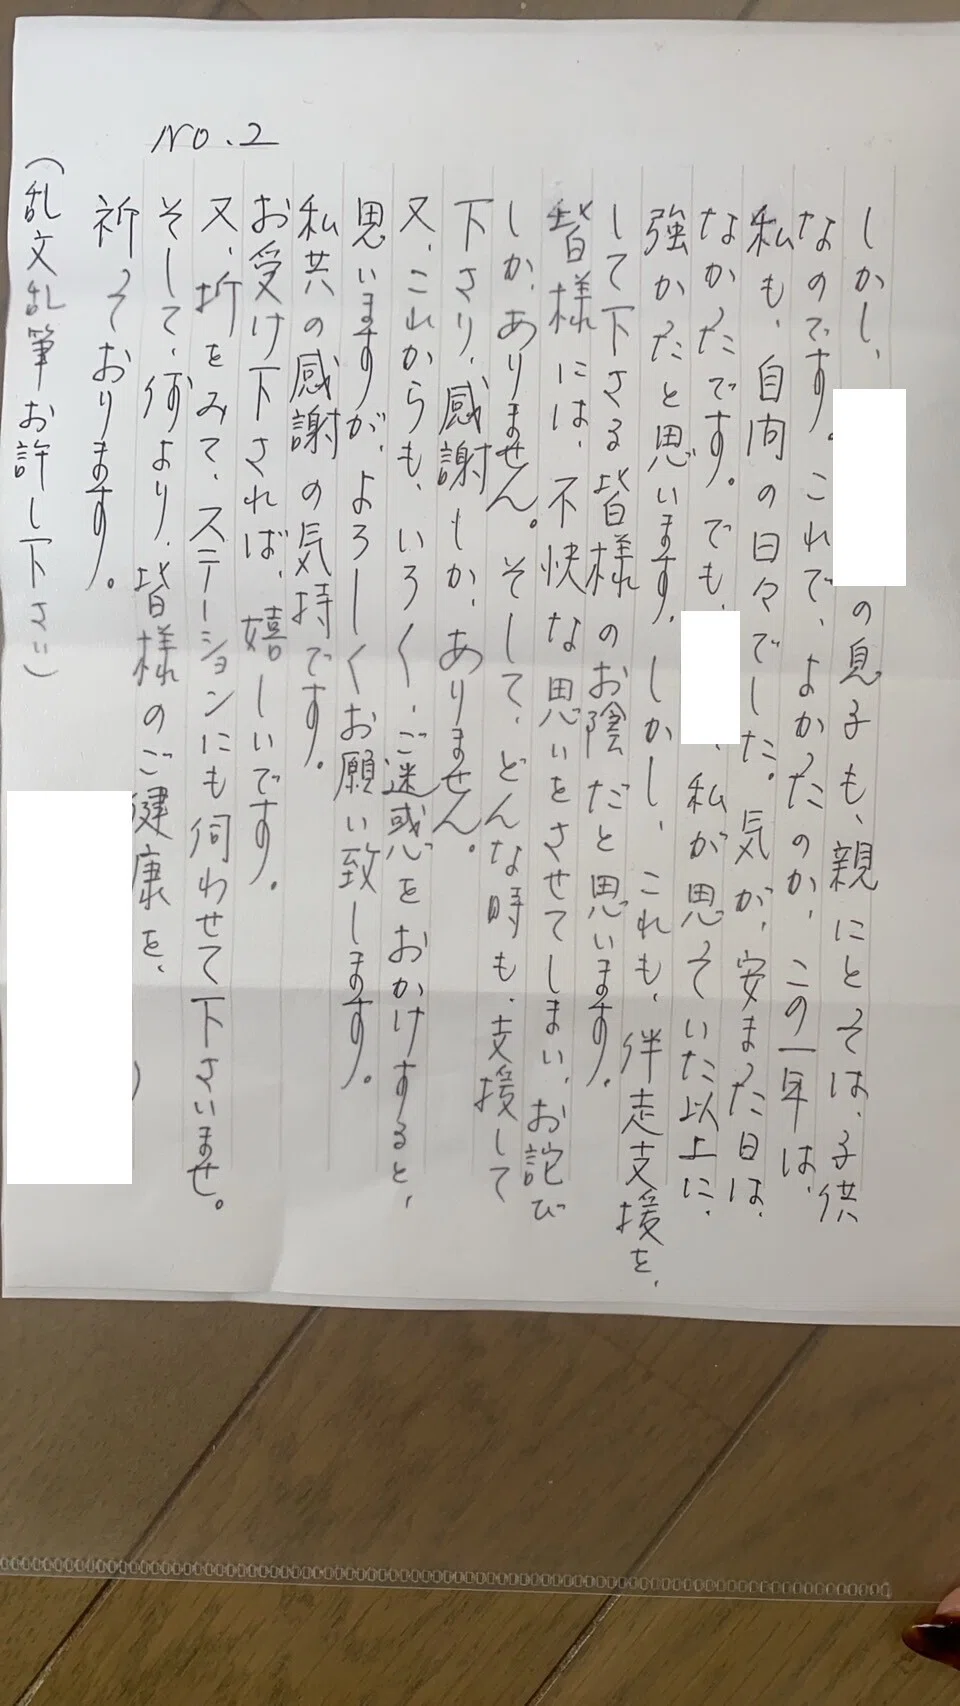 No.2
しかし、の息子も、親にとっては、子供
なのです。これで、よかったのか、この一年は、
私も、自問の日々でした。気が、安まった日は、
なかったです。でも、、私が思っていた以上に、
強かったと思います。しかし、これも、伴走支援を、
して下さる皆様のお陰だと思います。
皆様には、不快な思いをさせてしまい、お詫び
しか、ありません。そして、どんな時も、支援して
下さり、感謝しか、ありません。
又、これからも、いろ〱、ご迷惑をおかけすると、
思いますが、よろしくお願い致します。
私共の感謝の気持です。
お受け下されば、嬉しいです。
又、折をみて、ステーションにも伺わせて下さいませ。
そして、何より、皆様のご健康を、
祈っております。
(乱文乱筆お許し下さい)